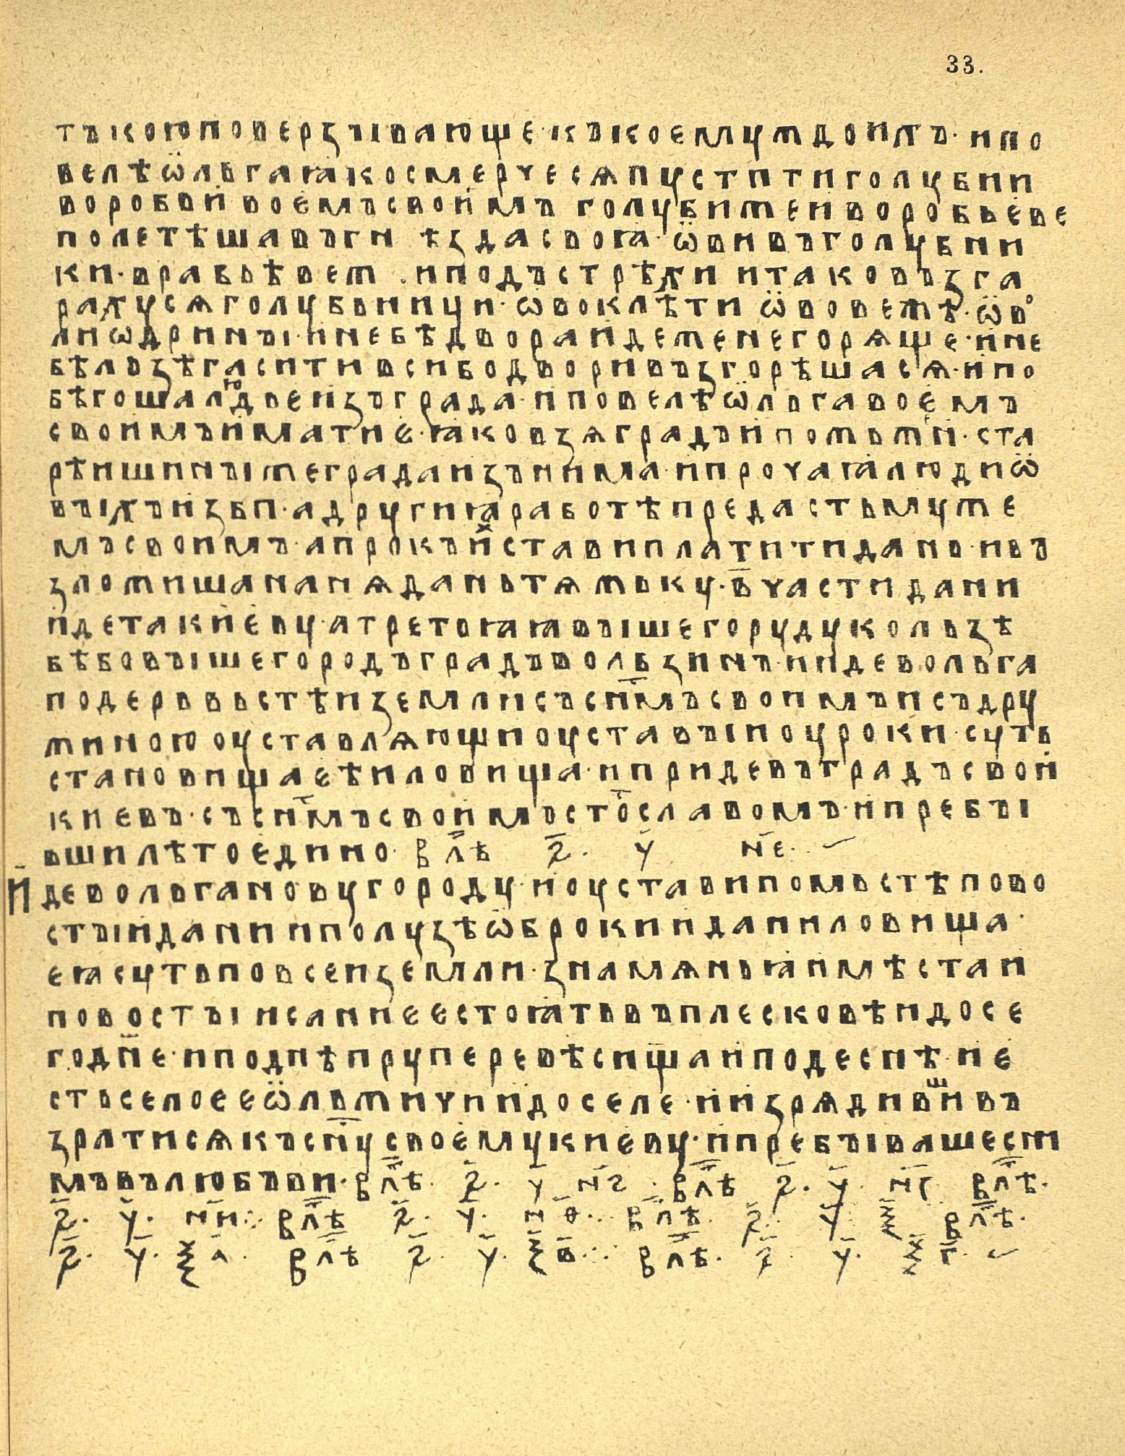 33.
тъкоюповерзъıвающе·къкоемужⷣоихъ·ипо
велѣѿльгаꙗкосмерчесѧпуститиголуби и
воробьи воемъсвоимъ голубижеиворобьеве
полетѣшавъгнѣздасвоꙗ·ѿвивъголубни
ки·врабьѣвеж .иподъстрѣхи итаковъзга
рахусѧголубьници·ѡвоклѣти ѿвовежѣ·ѡво
лиѡдринъı·инебѣдвораидеженегорѧще·ине
бѣльзѣгаситивсибодворивъзгорѣшасѧ·ипо
бѣгошалюдьеизъграда·иповелѣѿльгавоемъ
своимъиматие·ꙗковзѧградъипожьжи·ста
рѣишинъıжеградаизънима·ипрочаꙗлюдиѿ
въıхъизби·адругиꙗработѣпредастьмуже
мъсвоимъ·апрокъихъставиплатитидань·ивъ
зложишананѧданьтѧжьку·в҃частидани
идетакиеву·атретоꙗꙗвъıшегорудукользѣ
бѣбовъıшегородъградъвользинъ·иидевольга
подеревьстѣиземлисъсн҃мъсвоимъисъдру
жиноюоуставлѧющиоуставъıиоуроки·суть
становищаеѣиловища·ипридевъградъсвои
киевъ·съсн҃мъсвоимъстⷭ҇ославомъ·ипребъı
вшилѣтоедино· влⷮѣ ҂ѕ҃· у҃ н҃е·
идевольгановугороду·иоуставипомьстѣпово
стъıидани иполузѣѡброкиидани ловища·
еꙗсутьповсеиземли·знамѧньꙗимѣстаи
повостъı исанıиеестоꙗтьвъплесковѣидосе
годⷩ҇е·иподнѣпрупоеревѣсищаиподеснѣ·ие
стьселоееѿльжичиıидоселе·иизрѧдившиивъ
зратисѧкъсн҃усвоемукиеву·ипребъıвашесни
мъвълюбъви·влⷮѣ ҂ѕ҃· у҃ н҃ѕ· влⷮѣ ҂ѕ҃· у҃· н҃з влⷮѣ·
҂ѕ҃· у҃· н҃и: влⷮѣ ҂ѕ҃· у҃· н҃ѳ· влⷮѣ· ҂ѕ҃· у҃· ѯ҃ влⷮѣ·
҂ѕ҃· у҃· ѯ҃а· влⷮѣ ҂ѕ҃· у҃· ѯ҃в· влⷮѣ· ҂ѕ҃· у҃· ѯ҃г·